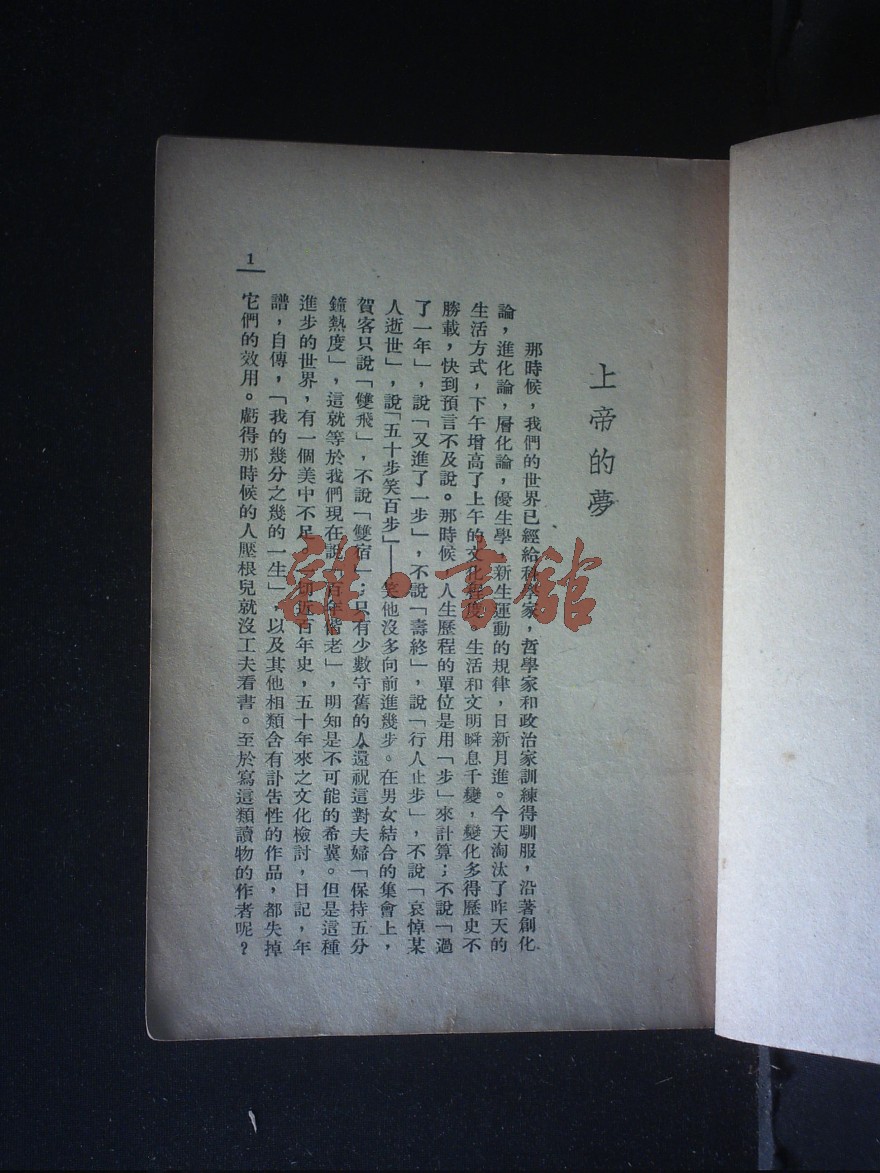 上帝的夢
那時候，我們的世界已經給科學家，哲學家和政治家訓練得馴服，沿著創化
論，進化論，層化論，優生學，新生運動的規律，日新月進。今天淘汰了昨天的
生活方式，下午增高了上午的文化程度。生活和文明瞬息千變，變化多得歷史不
勝載，快到預言不及說。那時候，人生歷程的單位是用「步」來計算；不說「過
了一年」，說「又進了一步」，不說「壽終」，說「行人止步」，不說「哀悼某
人逝世」，說「五十步笑百步」——笑他沒多向前進幾步。在男女結合的集會上，
賀客只說「雙飛」，不說「雙宿」；只有少數守舊的人還祝這對夫婦「保持五分
鐘熱度」，這就等於我們現在說「百年偕老」，明知是不可能的希冀。但是這種
進步的世界，有一個美中不足，一切近百年史，五十年來之文化檢討，日記，年
譜，自傳，「我的幾分之幾的一生」，以及其他相類含有訃告性的作品，都失掉
它們的效用。虧得那時候的人壓根兒就沒工夫看書。至於寫這類讀物的作者呢？
1
雜·書館